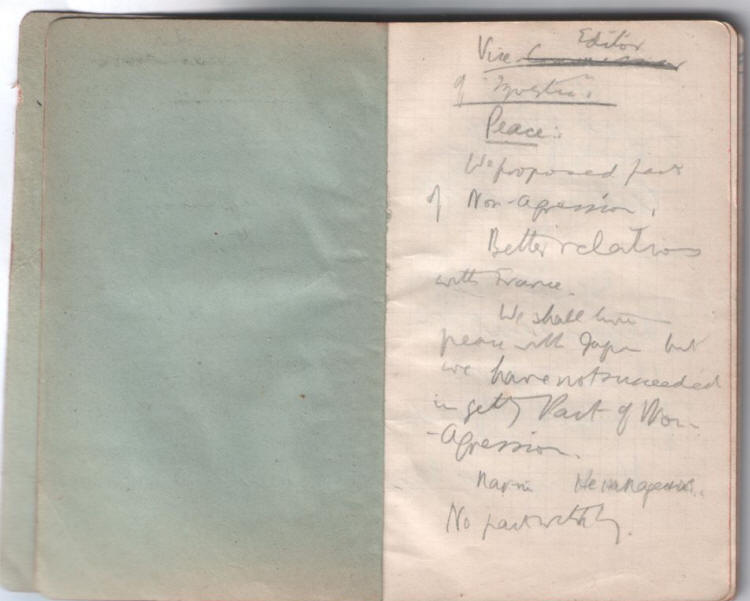 Editor
Vice
of "Izvestia".
Peace:
We proposed pact
of Non-Agression.
Better relations
with France.
We shall have
peace with Japan but
we have not succeeded
in getting Pact of Non-
-Agression.
No pact with